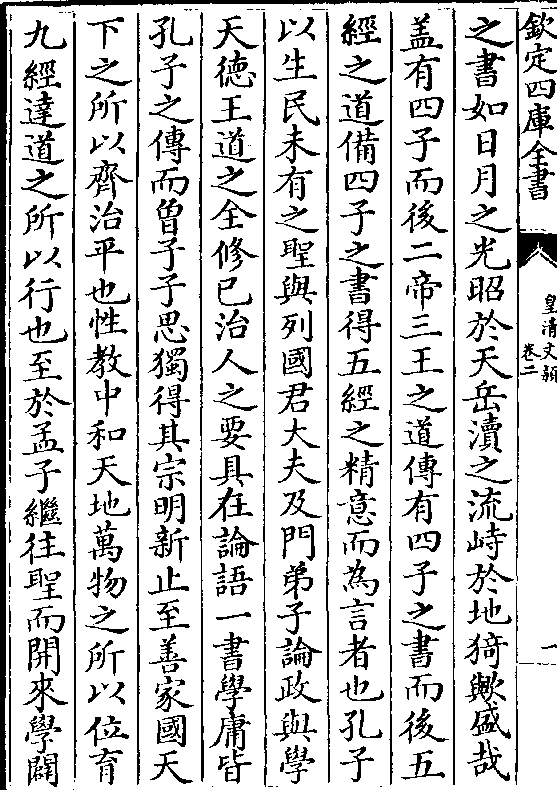 欽定四庫全書
皇清文穎
卷二
一
之書如日月之光昭於天岳瀆之流峙於地猗歟盛哉
蓋有四子而後二帝三王之道傳有四子之書而後五
經之道備四子之書得五經之精意而為言者也孔子
以生民未有之聖與列國君大夫及門弟子論政與學
天德王道之全修已治人之要具在論語一書學庸皆
孔子之傳而曽子子思獨得其宗明新止至善家國天
下之所以齊治平也性教中和天地萬物之所以位育
九經達道之所以行也至於孟子繼往聖而開來學闢